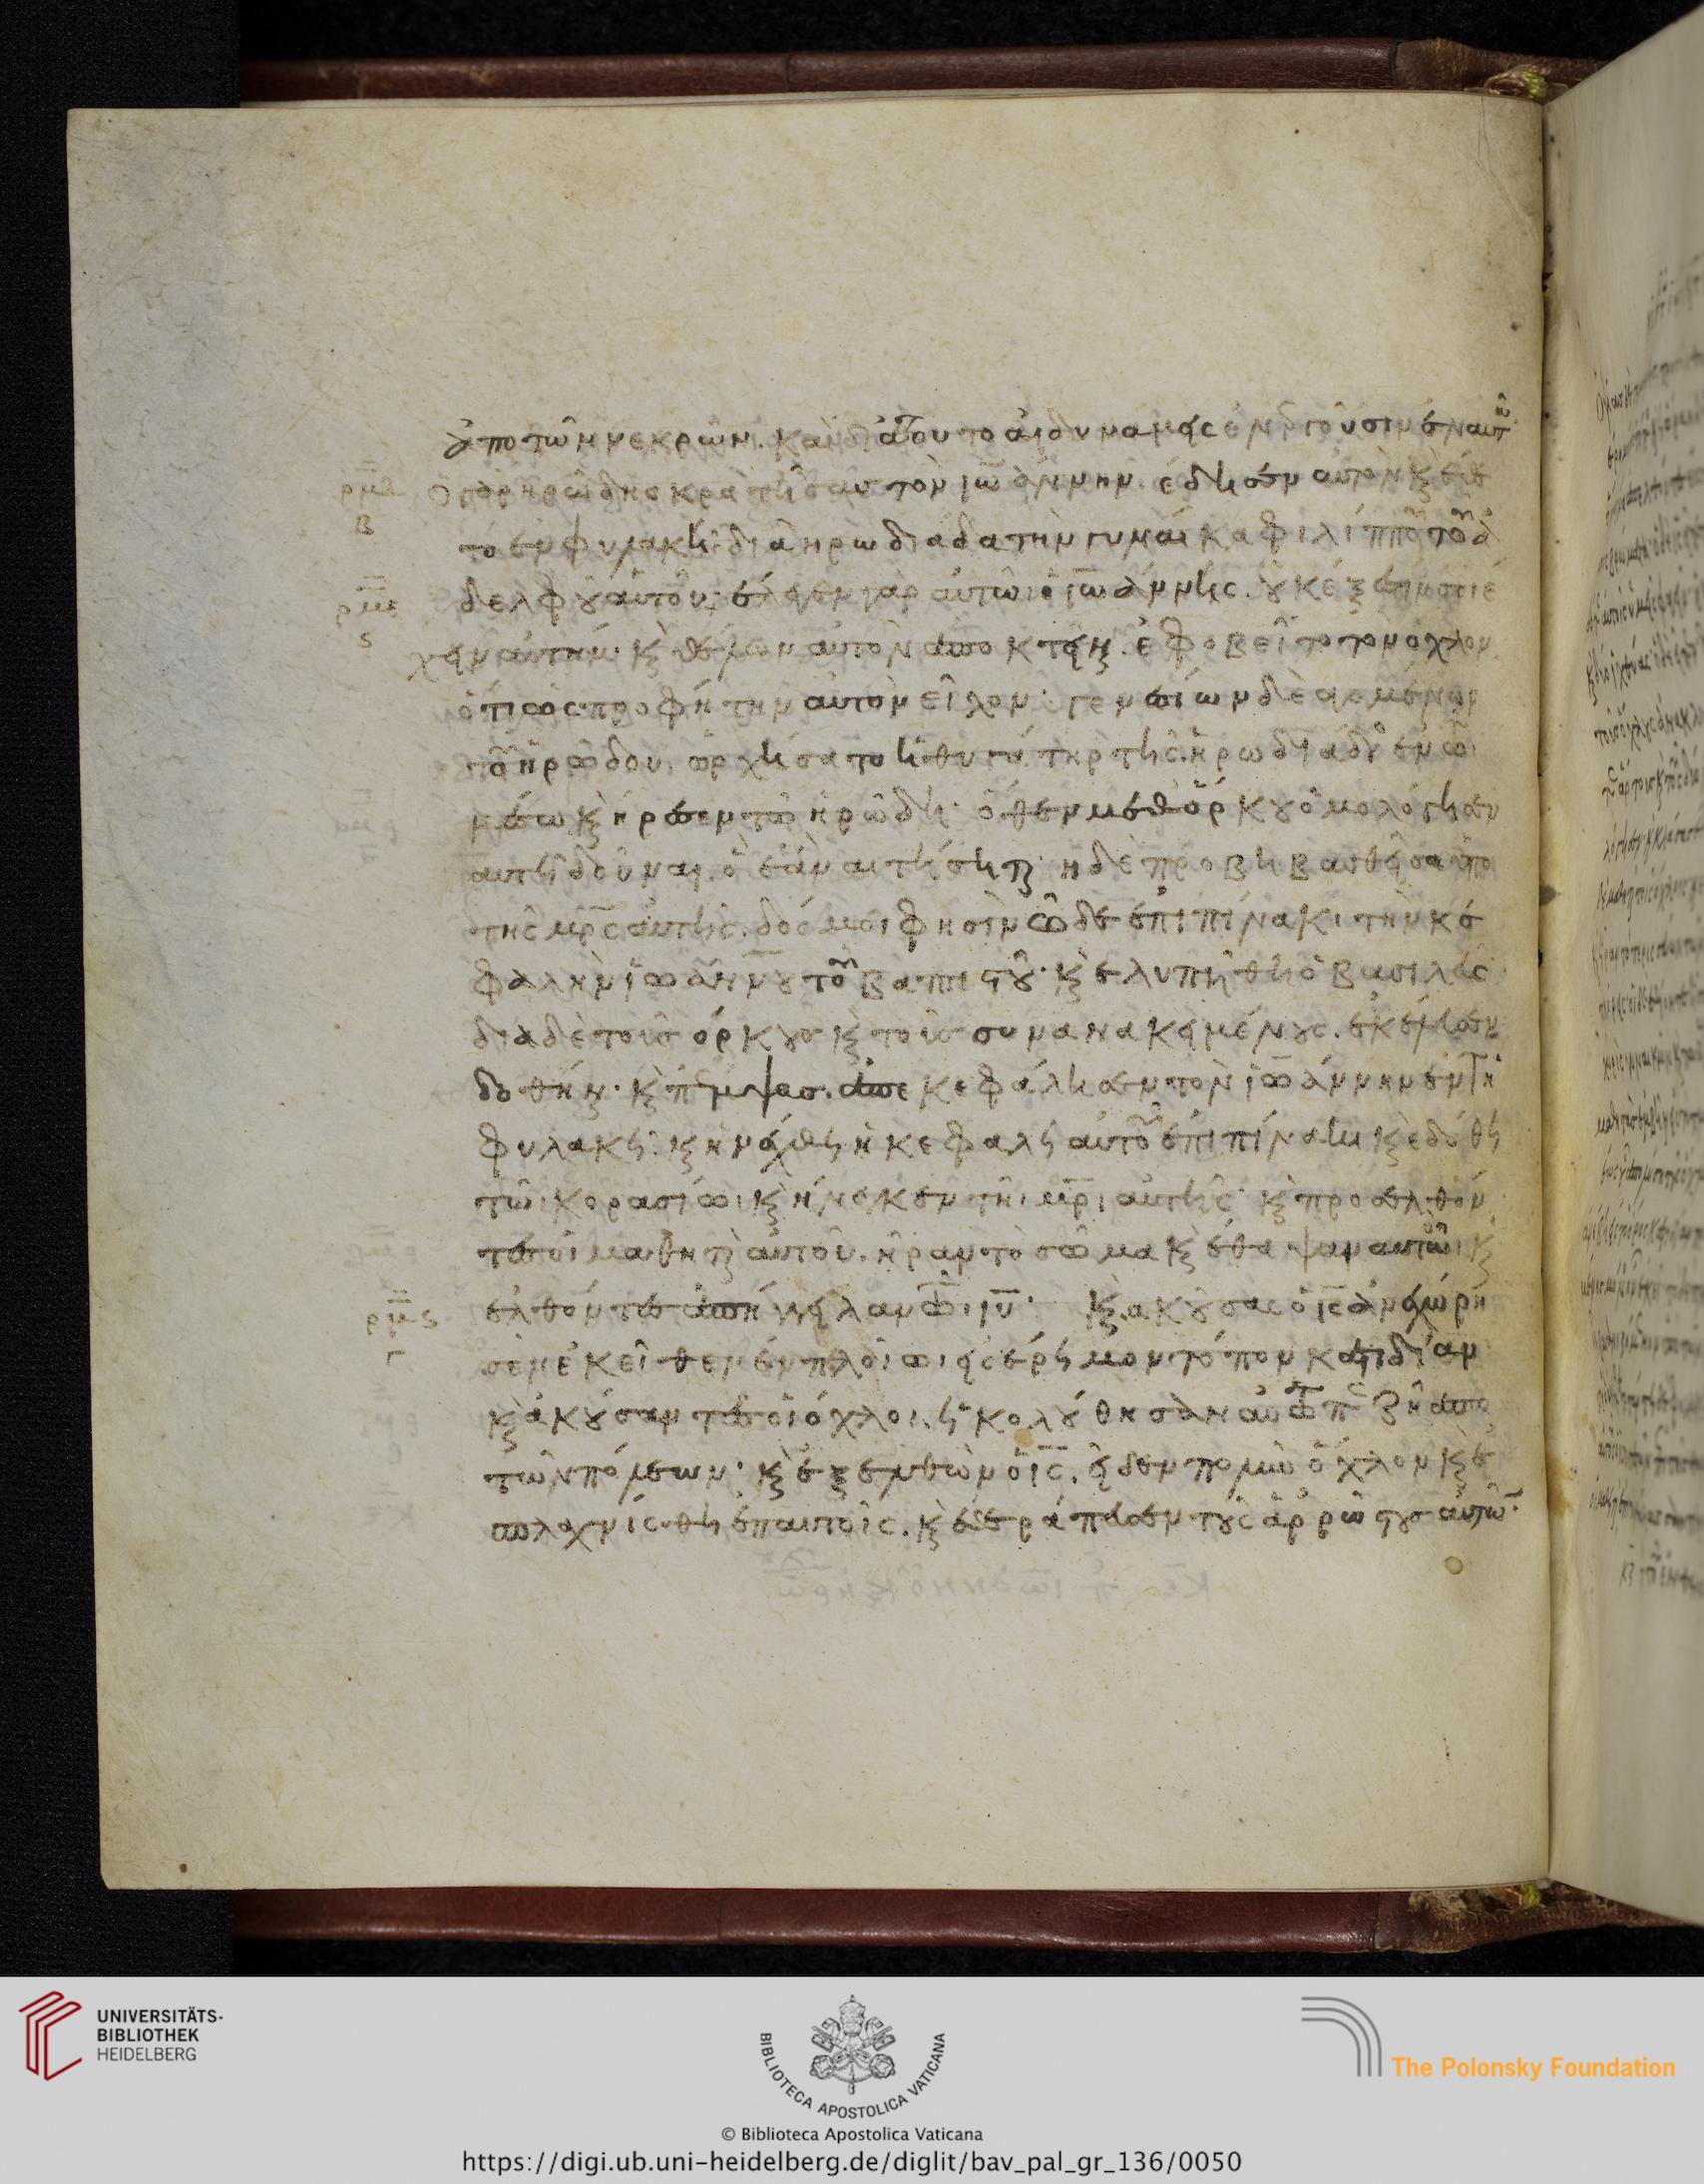 ἀπὸ τῶν νεκρῶν. καὶ διὰ τοῦτο αἱ δυνάμεις ἐνεργοῦσιν ἐν αυτῶ
ρμδ Ὁ γὰρ ἡρώδης κρατήσας τὸν ἰωάννην. ἔδησεν αὐτὸν κ ἔθε
β
το ἐν φυλακῆ· διὰ ἡρωδιάδα τὴν γυναῖκα φιλίππου τοῦ ἀ
ρμε δελφοῦ αὐτοῦ· ἔλεγεν γὰρ αὐτῶ ὁ ἰωάννης. οὐκ ἔξεστιν σοι ἔ
ς
χειν αὐτήν· κ θέλων αὐτὸν ἀποκτεῖναι. ἐφοβεῖτο τὸν ὄχλον
ὅτι ὡς προφήτην αὐτὸν εἶχον· γενεσίων δὲ ἀγομένων
τοῦ ἡρώδου. ὠρχήσατο ἡ θυγάτηρ τῆς ἡρωδιάδος ἐν τῶ
μέσω κ ἤρεσεν τῶ ἡρώδη· ὅθεν μεθ ὅρκου ὁμολόγησεν
αυτῆ δοῦναι. ὃ ἐὰν αιτήσηται· ἡ δὲ προβηβασθεῖσα ὑπὸ
τῆς μρς αὐτῆς. δός μοι φησὶν ὧδε ἐπὶ πίνακι τὴν κε
φαλὴν ἰωάννου τοῦ βαπτιστοῦ· κ ἐλυπήθη ὁ βασιλεύς·
διὰ δὲ τοὺς ὅρκους κ τοὺς συνανακειμένους. ἐκέλευσεν
δοθῆναι· κ πέμψας. ἀπεκεφάλησεν τὸν ἰωάννην ἐν τῆ
φυλακῆ· κ ἠνέχθη ἡ κεφαλὴ αὐτοῦ ἐπὶ πίνακι κ ἐδόθη
τῶ κορασίω· κ ἤνεκεν τῆ μρι αὐτῆς· κ προσελθόν
τες οἱ μαθηταὶ αὐτοῦ. ἦραν τὸ σῶμα κ ἔθαψαν αυτῶ κ
ρμς ἐλθόντες ἀπήγγειλαν τῶ ιυ· κ ακούσας ὁ ις ἀνεχώρη
γ
σεν ἐκεῖθεν ἐν πλοίω εἰς ἔρημον τόπον κατιδίαν
κ ἀκούσαντες οἱ ὄχλοι. ἠκολούθησαν αὐτῶ πεζῆ ἀπὸ
τῶν πόλεων· κ ἐξελθὼν ὁ ις. εἶδεν πολὺν ὄχλον κ ἐ
σπλαχνίσθη ἐπαυτοῖς. κ ἐθεράπευσεν τοὺς ἀρρώστους αὐτῶν·
UNIVERSITÄTS-
BIBLIOTHEK
HEIDELBERG
BIBLIOTECA APOSTOLICA VATICANA
The Polonsky Foundation
© Biblioteca Apostolica Vaticana
https://digi.ub.uni-heidelberg.de/diglit/bav_pal_gr_136/0050